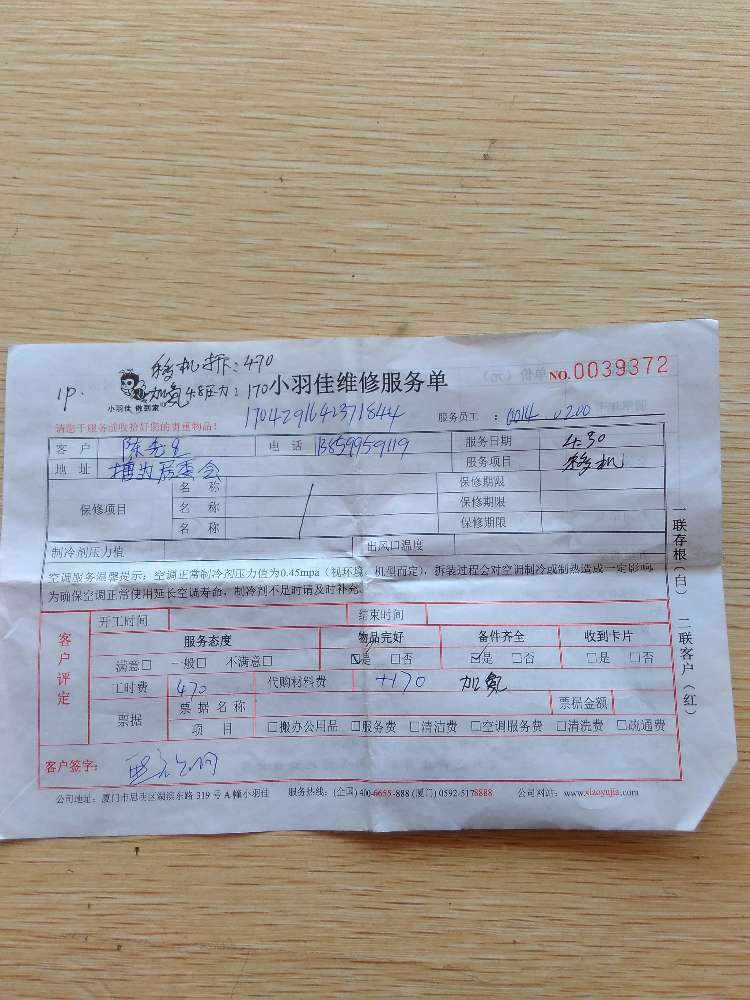 移机拆：470
1P. 加氟 4.8压力：170
小羽佳 做到家
小羽佳维修服务单
NO.0039372
1704291642371844
服务员工：
请您于服务前收拾好您的贵重物品！
客户 陈先生 电话 13859959119 服务日期 4.30
地址 居委会 服务项目 移机
保修项目 名称 保修期限
名称 保修期限
名称 保修期限
制冷剂压力值 出风口温度
空调服务温馨提示：空调正常制冷剂压力值为0.45mpa（视环境、机型而定），拆装过程会对空调制冷或制热造成一定影响
为确保空调正常使用延长空调寿命，制冷剂不足时请及时补充
客户评定
开工时间 结束时间
服务态度 物品完好 备件齐全 收到卡片
满意□ 一般□ 不满意□ ☑是 □否 ☑是 □否 □是 □否
工时费 470 代购材料费 +170 加氟
票据 票据名称 票据金额
项目 □搬办公用品 □服务费 □清洁费 □空调服务费 □清洗费 □疏通费
客户签字：
公司地址：厦门市思明区湖滨东路 319 号 A 幢小羽佳 服务热线：(全国) 400-6655-888 (厦门) 0592-5178888 公司网站：www.xiaoyujia.com
一联存根（白） 二联客户（红）